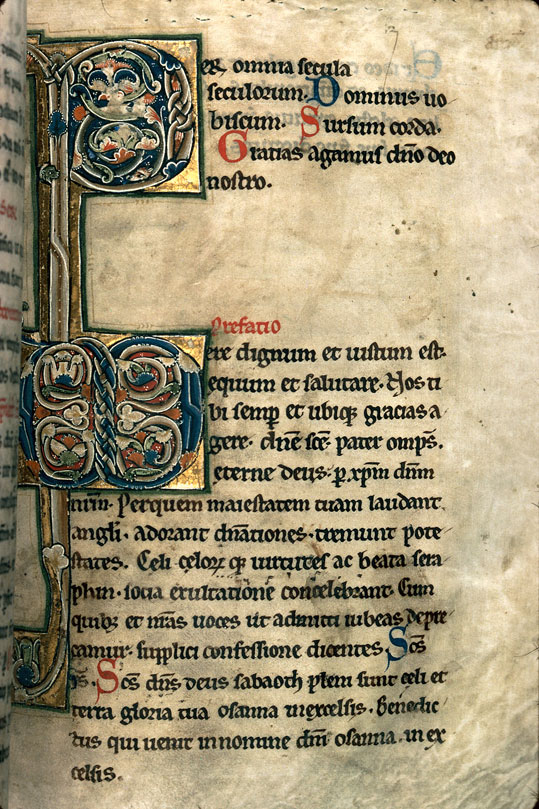 Per omnia secula
seculorum. Dominus uo
biscum. Sursum corda.
Gratias agamus dño deo
nostro.
Prefatio
Vere dignum et iustum est.
equum et salutare. Nos ti
bi semp et ubiq; gracias a
gere. dñe sce pater omps.
eterne deus. p xpm dnm
nrm. Per quem maiestatem tuam laudant
angli. adorant dnationes. tremunt pote
states. Celi celorz q; uirtutes ac beata sera
phin. socia exultatione concelebrant. Cum
quibz et nras uoces ut admitti iubeas depre
camur. supplici confessione dicentes. Scs
Scs. Scs dns deus sabaoth pleni sunt celi et
terra gloria tua osanna in excelsis. Benedic
tus qui uenit in nomine dni osanna. in ex
celsis.